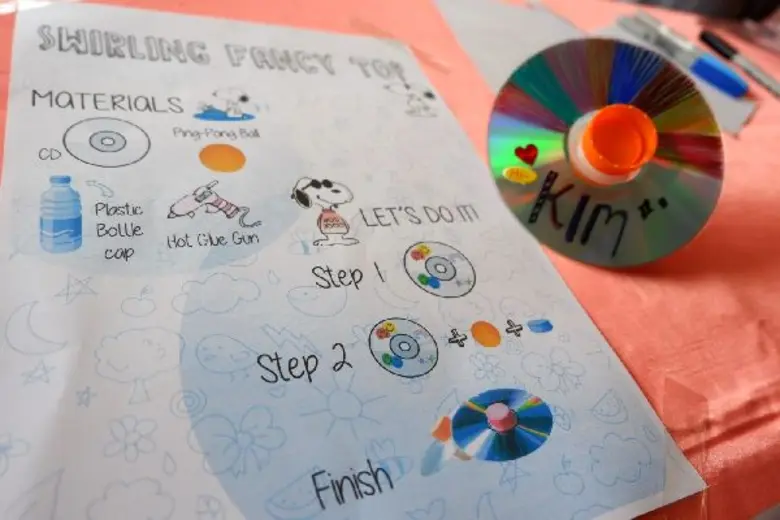 SWIRLING FANCY TOY
MATERIALS
CD
Ping-Pong Ball
Plastic
Bottle
cap
Hot Glue Gun
LET'S DO IT!
Step 1
Step 2
Finish
KIM